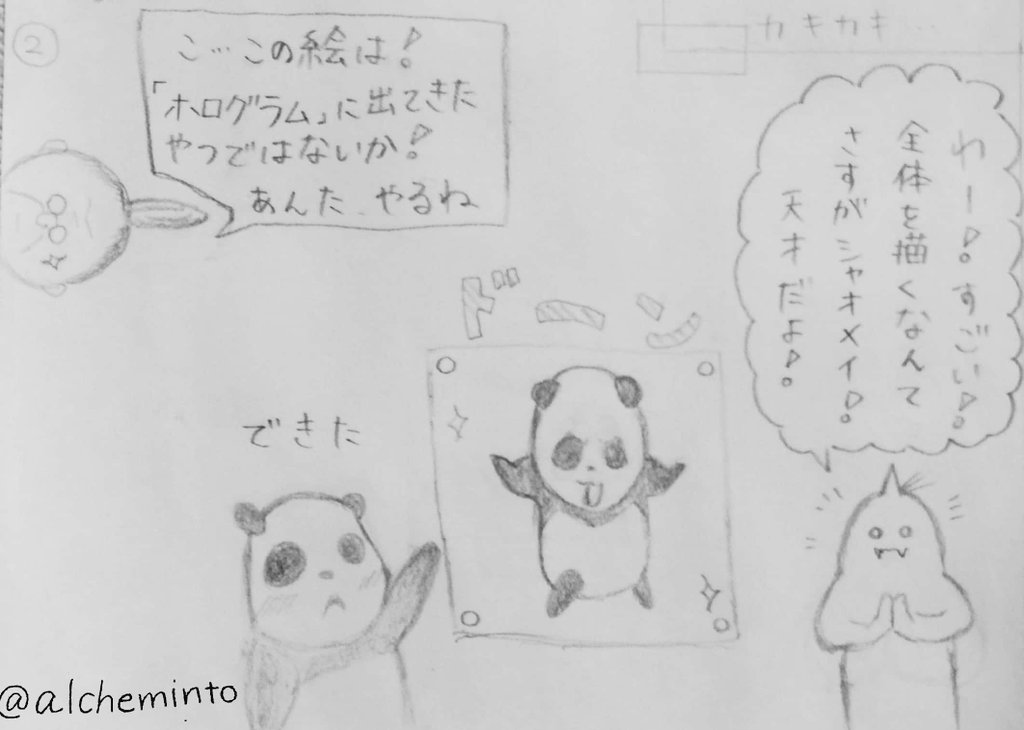 ②
こ…この絵は!
「ホログラム」に出てきた
やつではないか!
あんた、やるね
カキカキ…
わー!すごい!
全体を描くなんて
さすがシャオメイ!
天才だよ!
ドーン
できた
@alcheminto